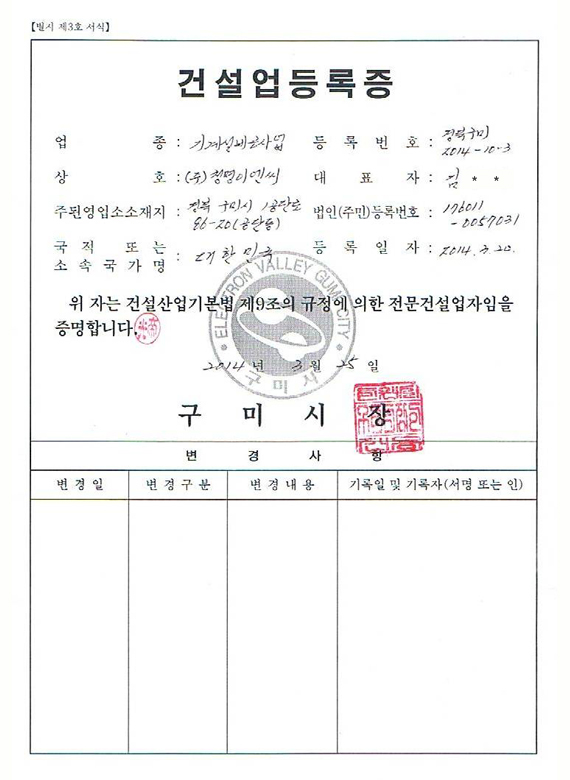 【별시 제3호 서식】
건설업등록증
업 종 : 기계설비공사업 등 록 번 호 : 경북구미 2014-10-3
상 호 : (주)청명이엔씨 대 표 자 : 김 * *
주된영업소소재지 : 경북 구미시 1공단로 86-20(공단동) 법인(주민)등록번호 : 176011 -0057031
국 적 또 는 소 속 국 가 명 : 대한민국 등 록 일 자 : 2014.3.20.
위 자는 건설산업기본법 제9조의 규정에 의한 전문건설업자임을
증명합니다.
ELECTRON VALLEY GUMI CITY
구미시
2014년 3월 25일
구 미 시 장
변 경 사 항
변 경 일 변 경 구 분 변 경 내 용 기록일 및 기록자(서명 또는 인)